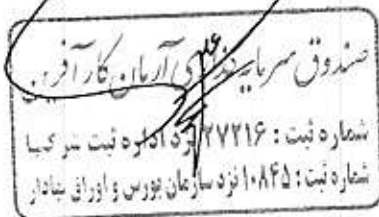 صندوق سرمایه گذاری آرمان کارآفرین
شماره ثبت : ۲۷۲۱۶ نزد اداره ثبت شرکتها
شماره ثبت : ۱۰۸۴۵ نزد سازمان بورس و اوراق بهادار